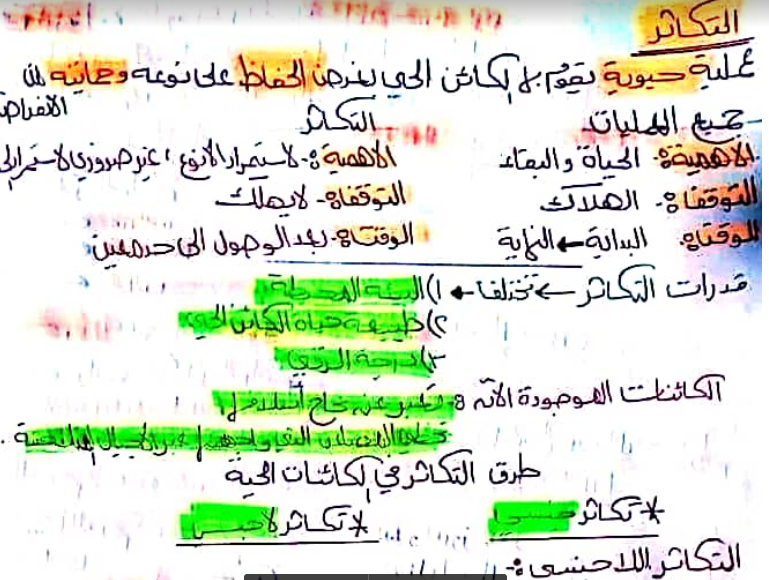 التكاثر
عملية حيوية يقوم بها الكائن الحي بغرض الحفاظ على نوعه وحمايته من الانقراض
جميع العمليات التكاثر
الأهمية:- الحياة والبقاء الأهمية:- لاستمرار الأنوع، غير ضروري لاستمرار
التوقف:- الهلاك التوقف:- لا يهلك
الوقت:- البداية ← النهاية الوقت:- بعد الوصول الى حد معين
قدرات التكاثر ← تختلف ← ١) البيئة المحيطة
٢) طبيعة حياة الكائن الحي
٣) درجة الرقي
الكائنات الموجودة الآن: تعبر عن نجاح أسلافها
تخطي
طرق التكاثر في الكائنات الحية
* تكاثر جنسي * تكاثر لاجنسي
التكاثر اللاجنسي:-